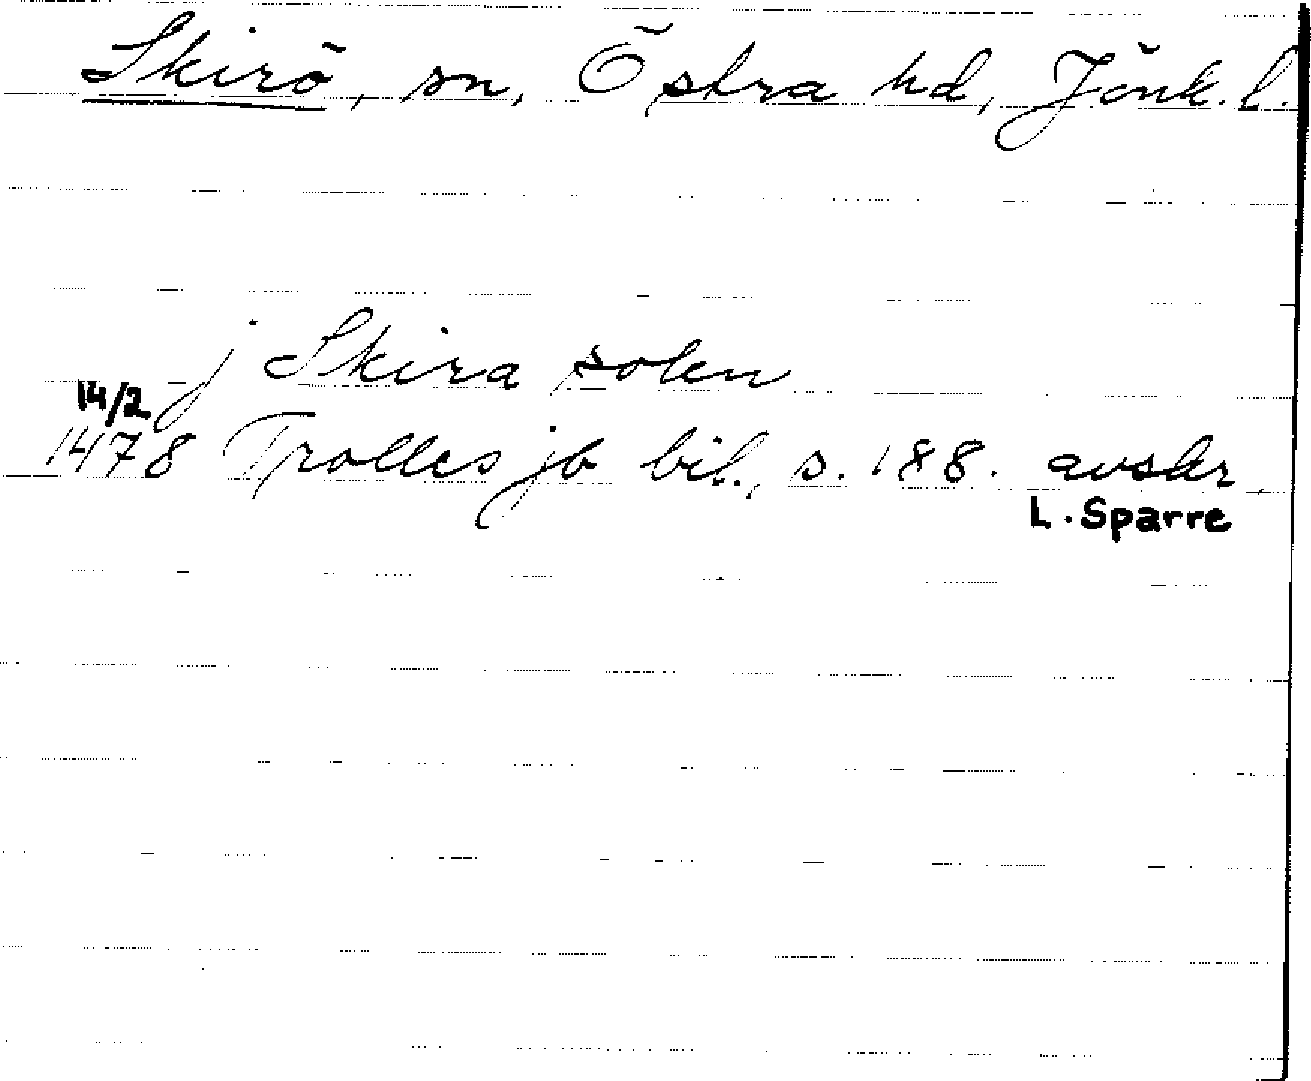 Skirö, sn, Östra hd, Jönk. l.
j Skira sokn
14/2
1478 Trolles jb bil., s. 188. avskr.
L. Sparre